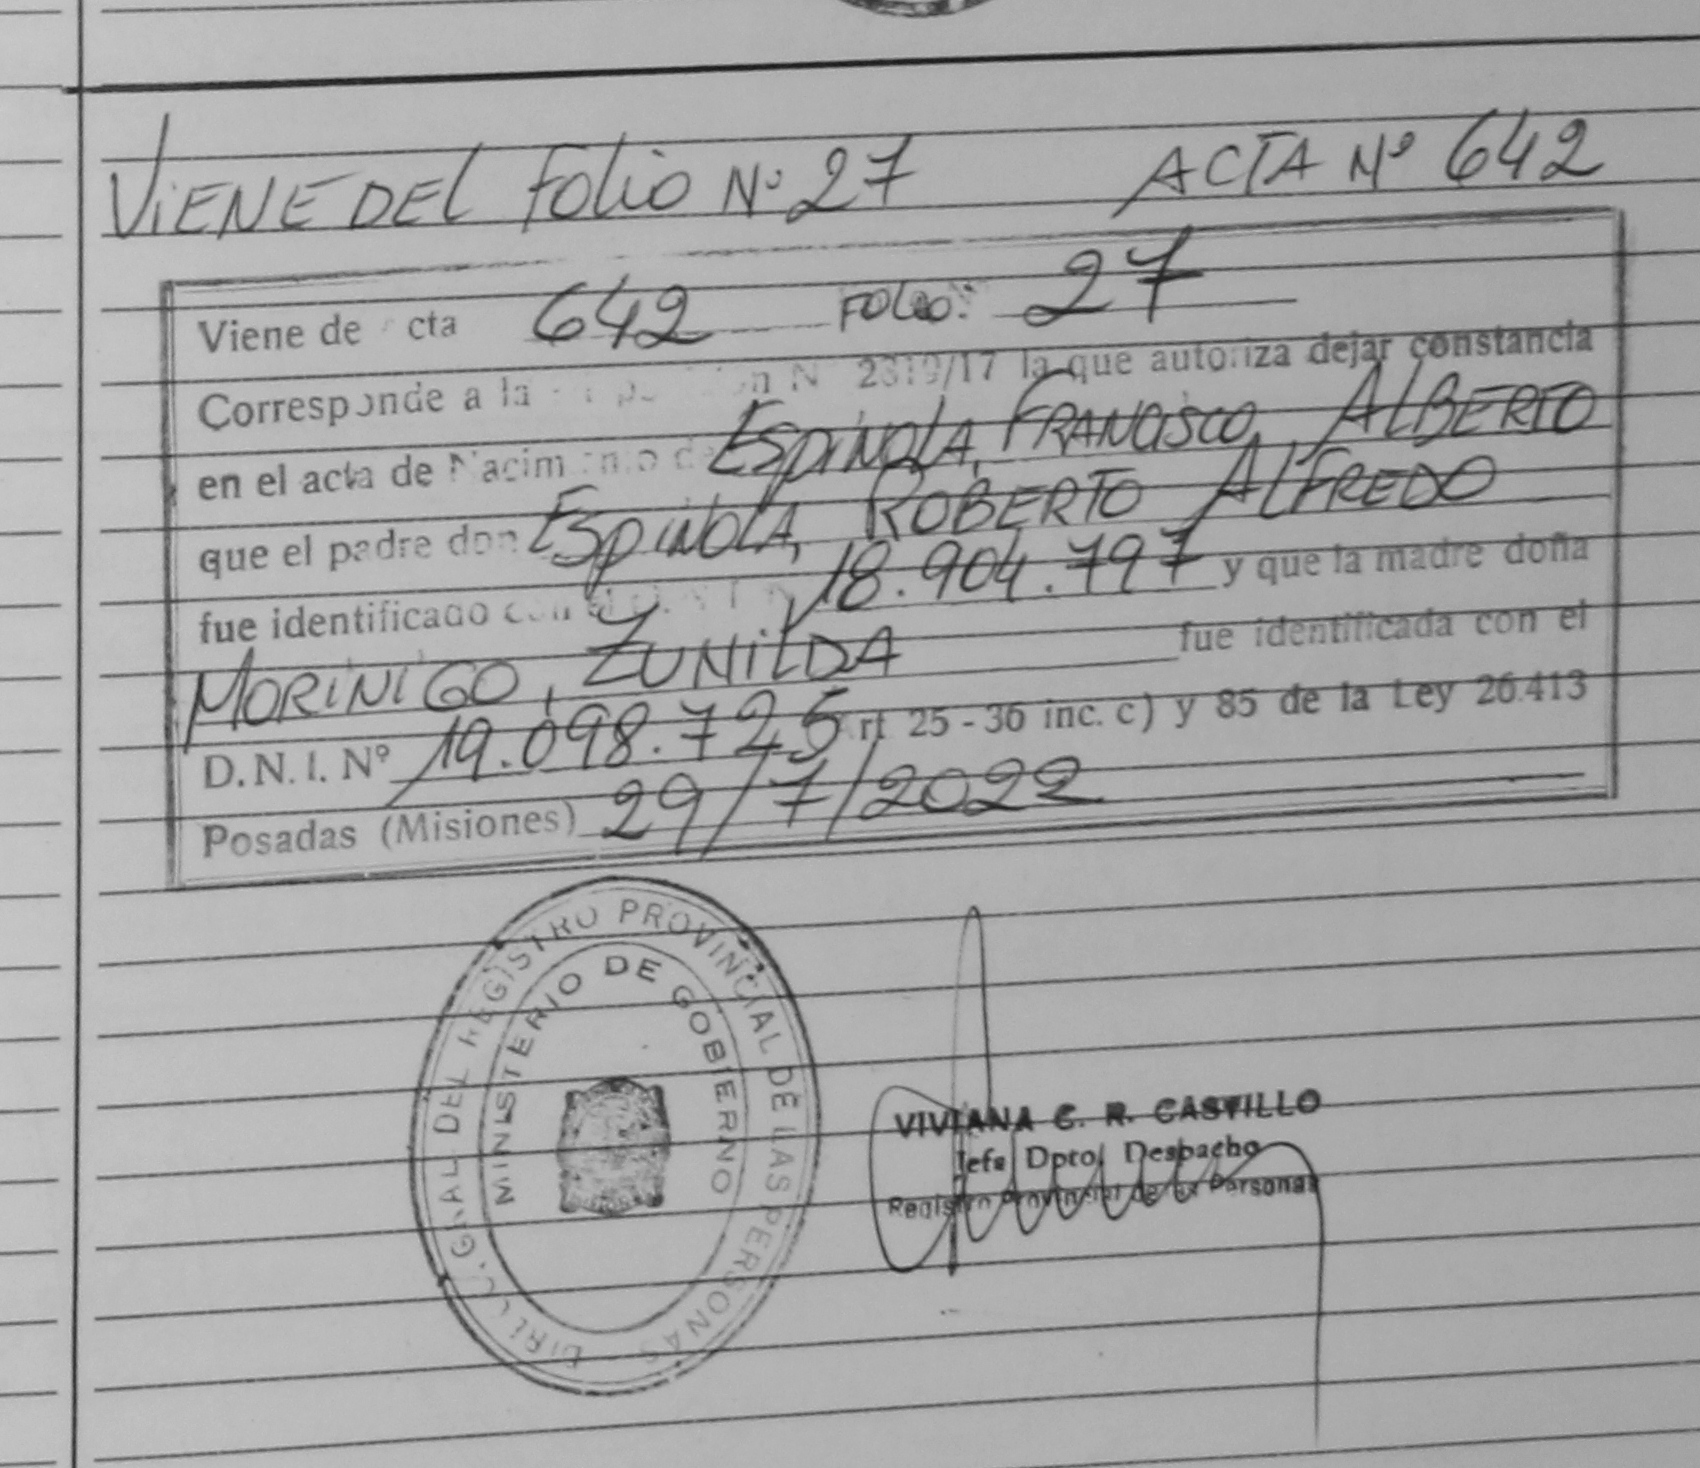 VIENE DEL FOLIO Nº 27 ACTA Nº 642
Viene de cta 642 FOLIO: 27
Corresponde a la N 2319/17 la que autoriza dejar constancia
en el acta de Nacim nto de ESPINOLA, FRANCISCO, ALBERTO
que el padre don ESPINOLA, ROBERTO ALFREDO
fue identificado con el 18.904.797 y que la madre doña
MORINIGO, ZUNILDA fue identificada con el
D.N.I. Nº 19.098.725 rt 25 - 36 inc. c) y 85 de la Ley 26.413
Posadas (Misiones) 29/7/2022
GRAL DEL REGISTRO PROVINCIAL DE LAS PERSONAS
MINISTERIO DE GOBIERNO
VIVIANA C. R. CASTILLO
Jefa Dpto Despacho
Registro Provincial de las Personas